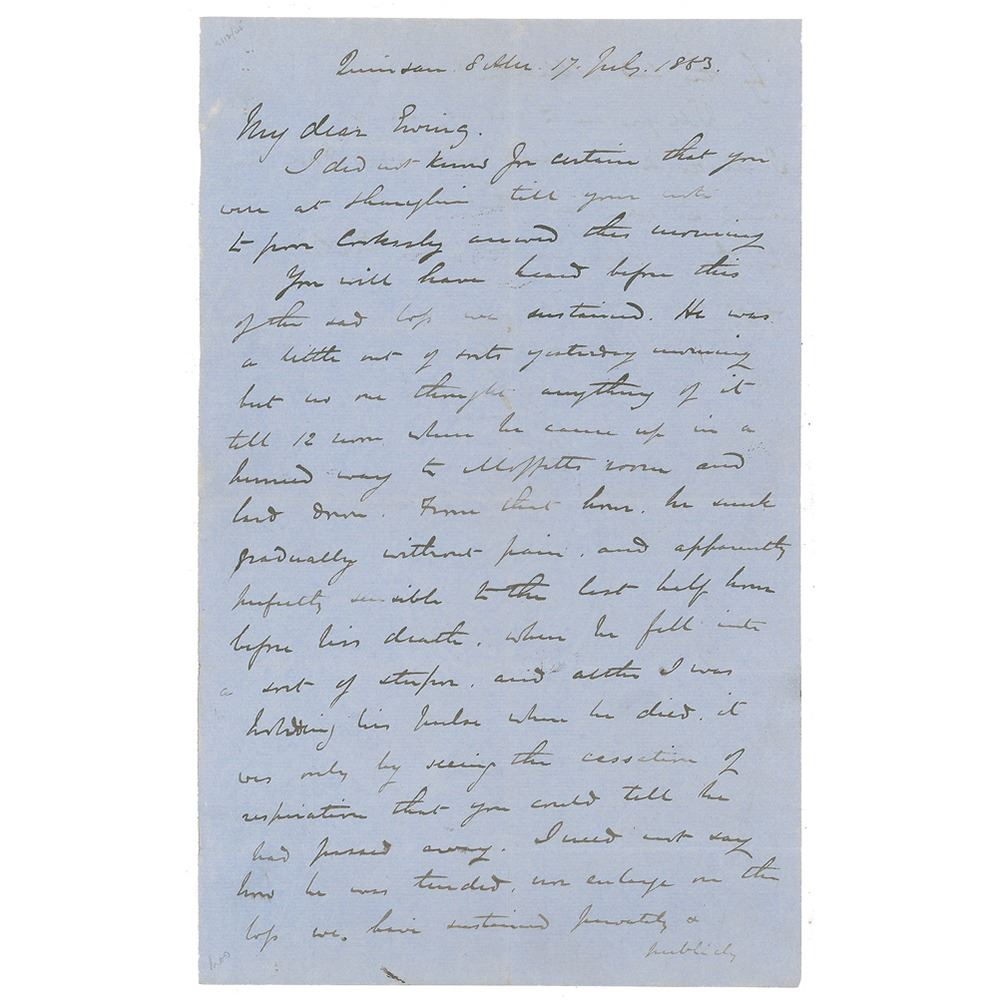 Quinsan. 8 AM. 17. July. 1863.
My dear Ewing.
I did not know for certain that you
were at Shanghai till your note
to poor Cookssly arrived this morning
You will have heard before this
of the sad loss we sustained. He was
a little out of sorts yesterday morning
but no one thought anything of it
till 12 noon when he came up in a
hurried way to Moffitts room and
laid down. From that hour, he sunk
gradually without pain, and apparently
perfectly sensible to the last half hour
before his death, when he fell into
a sort of stupor, and altho I was
holding his pulse when he died, it
was only by seeing the cessation of
respiration that you could tell he
had passed away. I need not say
how he was tended, nor enlarge on the
loss we have sustained privately &
publicly